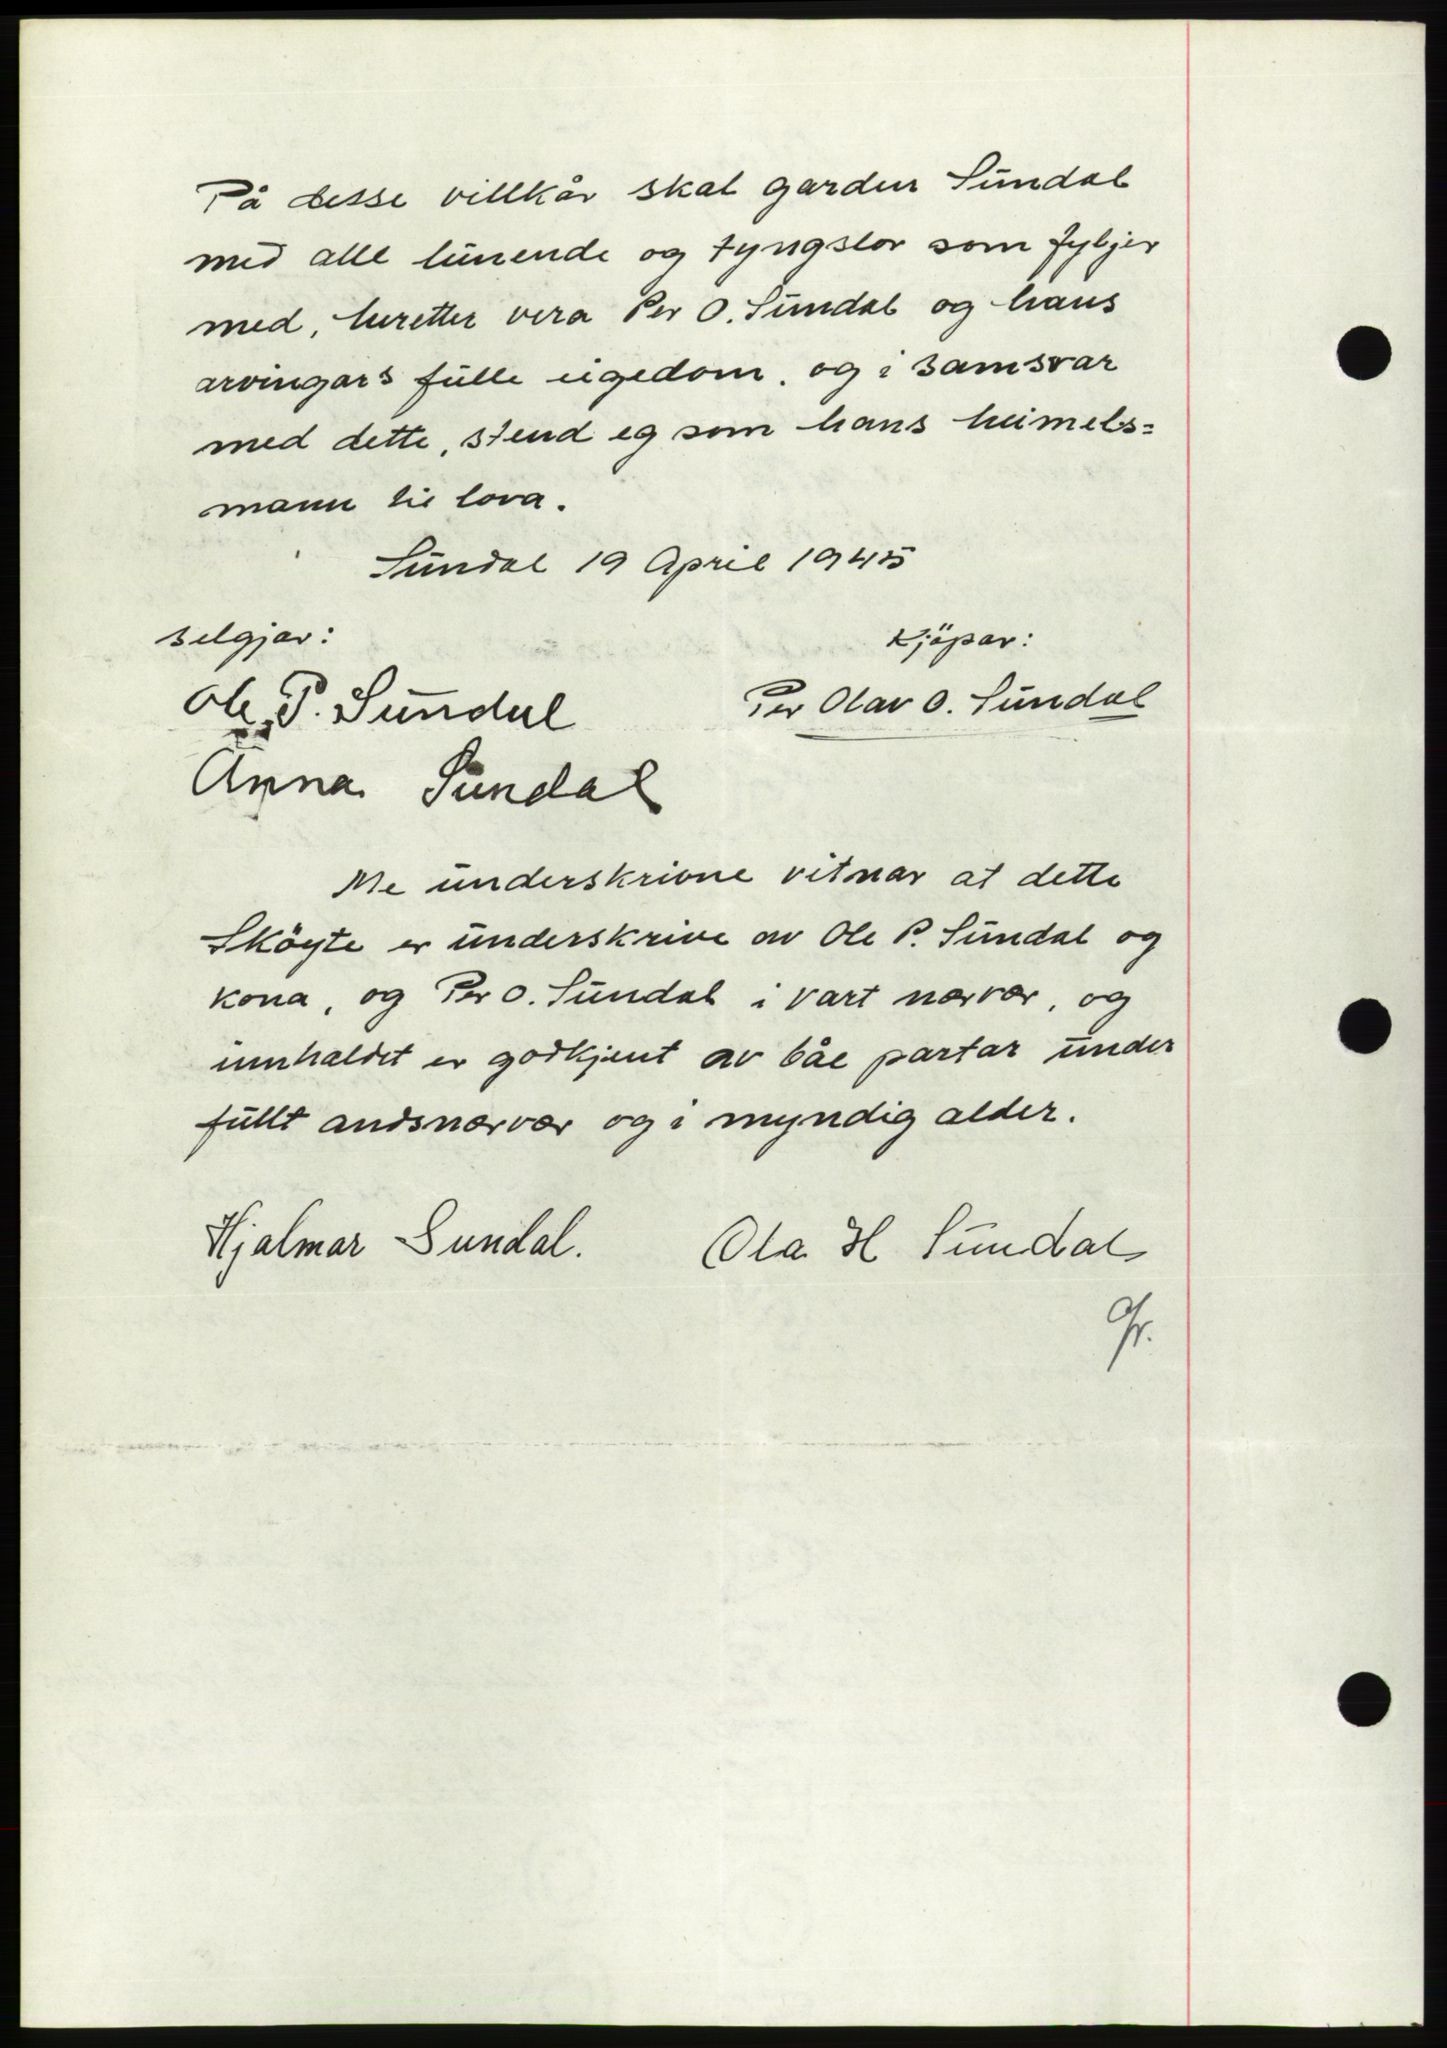 På desse villkår skal garden Sundal
med alle lunende og tyngslor som fylgjer
med, heretter vera Per O. Sundal og hans
arvingars fulle eigedom, og i samsvar
med dette, stend eg som hans heimels=
mann til lova.
Sundal 19 April 1945
Selgjar:
Kjöpar:
Ole P. Sundal
Per Olav O. Sundal
Anna Sundal
Me underskrivne vitnar at dette
Sköyte er underskrive av Ole P. Sundal og
kona, og Per O. Sundal i vart nærvær, og
innhaldet er godkjent av båe partar under
fullt andsnærvær og i myndig alder.
Hjalmar Sundal.
Ola H Sundal